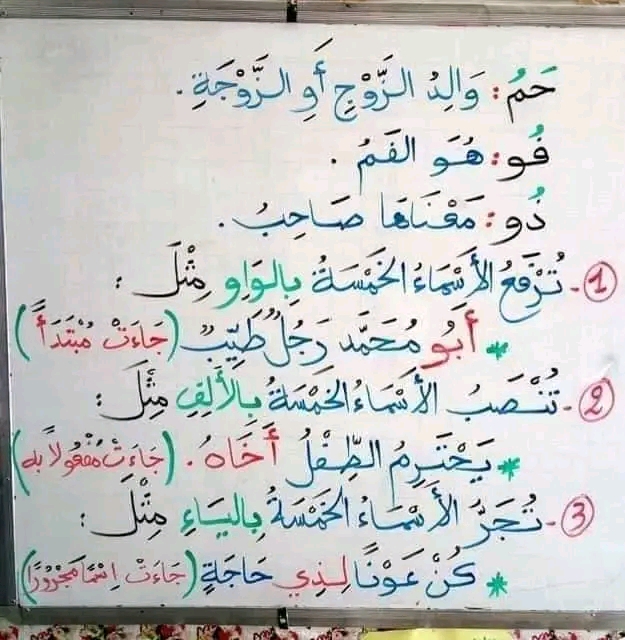 حَمُ: وَالِدُ الزَّوْجِ أَوِ الزَّوْجَةِ.
فُو: هُوَ الفَمُ.
ذُو: مَعْنَاهَا صَاحِبُ.
1- تُرْفَعُ الأَسْمَاءُ الخَمْسَةُ بِالوَاوِ مِثْلَ:
* أَبُو مُحَمَّد رَجُلٌ طَيِّبٌ (جَاءَتْ مُبْتَدَأً)
2- تُنْصَبُ الأَسْمَاءُ الخَمْسَةُ بِالأَلِفِ مِثْلَ:
* يَحْتَرِمُ الطِّفْلُ أَخَاهُ. (جَاءَتْ مَفْعُولاً به)
3- تُجَرُّ الأَسْمَاءُ الخَمْسَةُ بِاليَاءِ مِثْلَ:
* كُنْ عَوْنًا لِذِي حَاجَةٍ (جَاءَتْ اِسْمًا مَجْرُورًا)